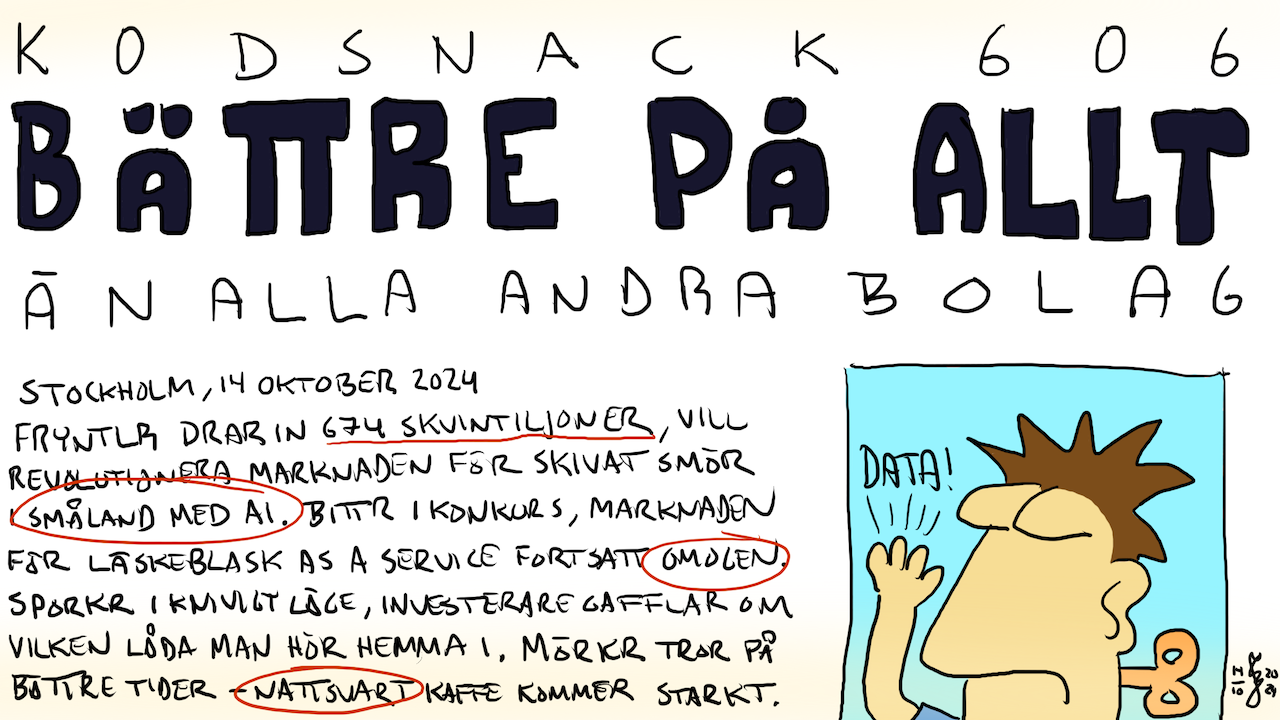 KODSNACK 606
BÄTTRE PÅ ALLT
ÄN ALLA ANDRA BOLAG
STOCKHOLM, 14 OKTOBER 2024
FRYNTLR DRAR IN 674 SKVINTILJONER, VILL
REVOLUTIONERA MARKNADEN FÖR SKIVAT SMÖR
I SMÅLAND MED AI. BITTR I KONKURS, MARKNADEN
FÖR LÄSKEBLASK AS A SERVICE FORTSATT OMOGEN.
SPORKR I KNIVIGT LÄGE, INVESTERARE GAFFLAR OM
VILKEN LÅDA MAN HÖR HEMMA I. MÖRKR TROR PÅ
BÄTTRE TIDER – NATTSVART KAFFE KOMMER STARKT.
DATA!
14/10 2024